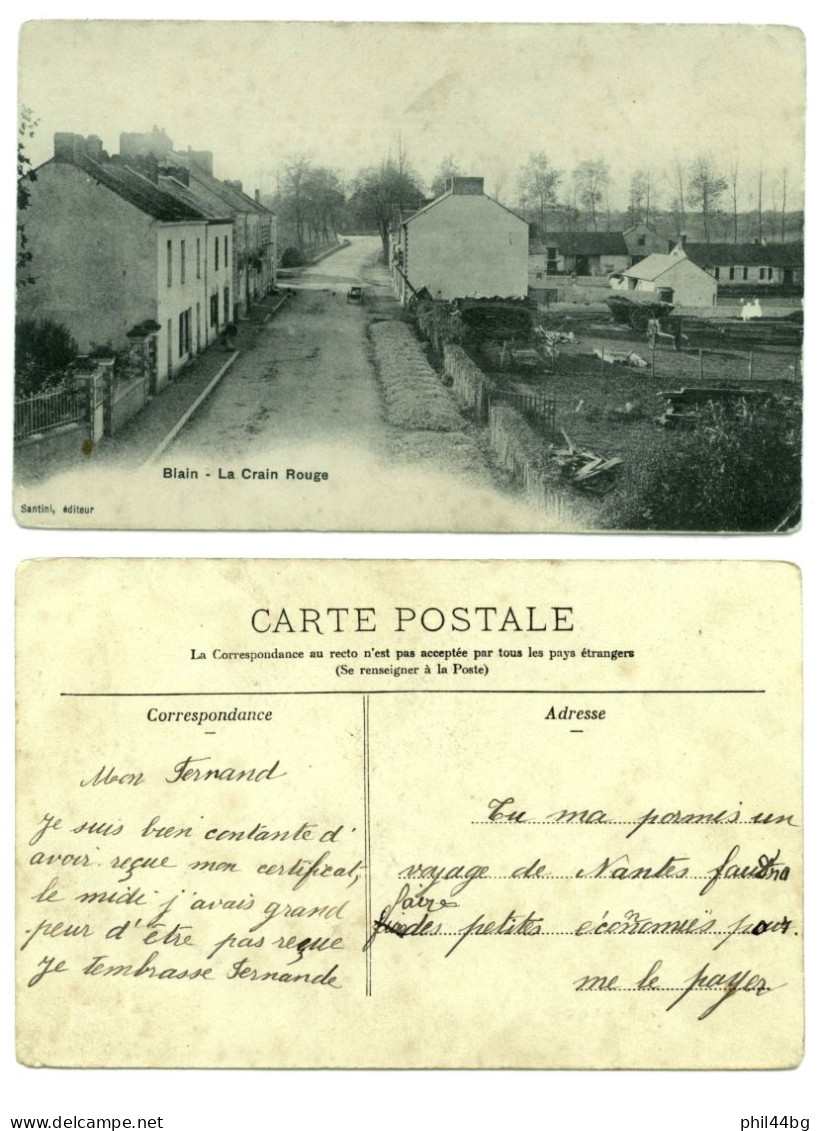 Blain - La Crain Rouge
Santini, éditeur
CARTE POSTALE
La Correspondance au recto n'est pas acceptée par tous les pays étrangers
(Se renseigner à la Poste)
Correspondance
Adresse
Mon Fernand
Je suis bien contante d'
avoir reçue mon certificat,
le midi j'avais grand
peur d'être pas reçue
Je tembrasse Fernande
Tu ma pormis un
voyage de Nantes faudra
faire
des petites économies pour
me le payer
delcampe.net
phil44bg